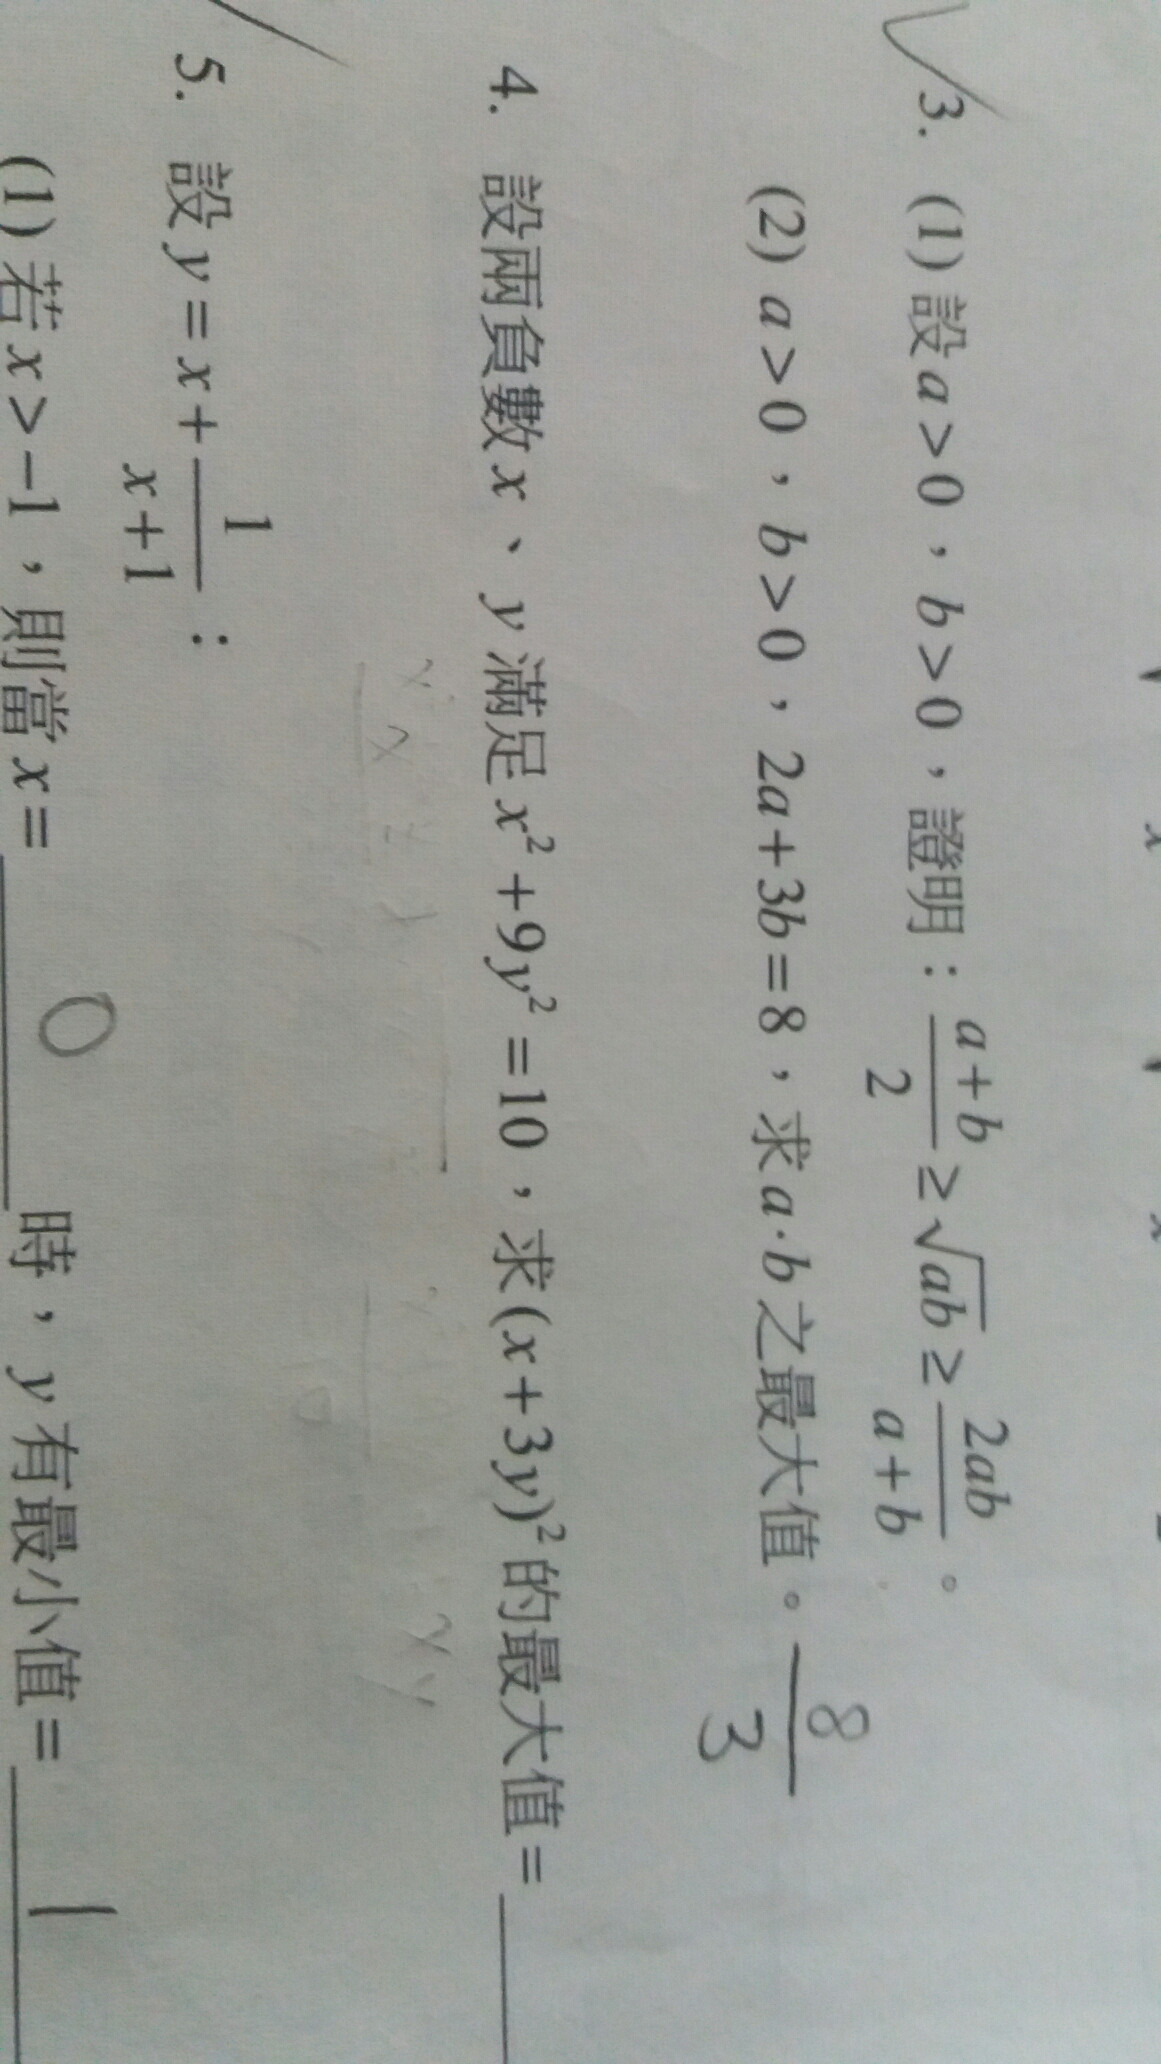 3. (1) 設 a>0，b>0，證明：\frac{a+b}{2} ≥ \sqrt{ab} ≥ \frac{2ab}{a+b}。
(2) a>0，b>0，2a+3b=8，求 a·b 之最大值。 \frac{8}{3}
4. 設兩負數 x、y 滿足 x²+9y²=10，求(x+3y)²的最大值=
xy
5. 設 y=x+\frac{1}{x+1}：
(1) 若 x>-1，則當 x= 0 時，y 有最小值= 1